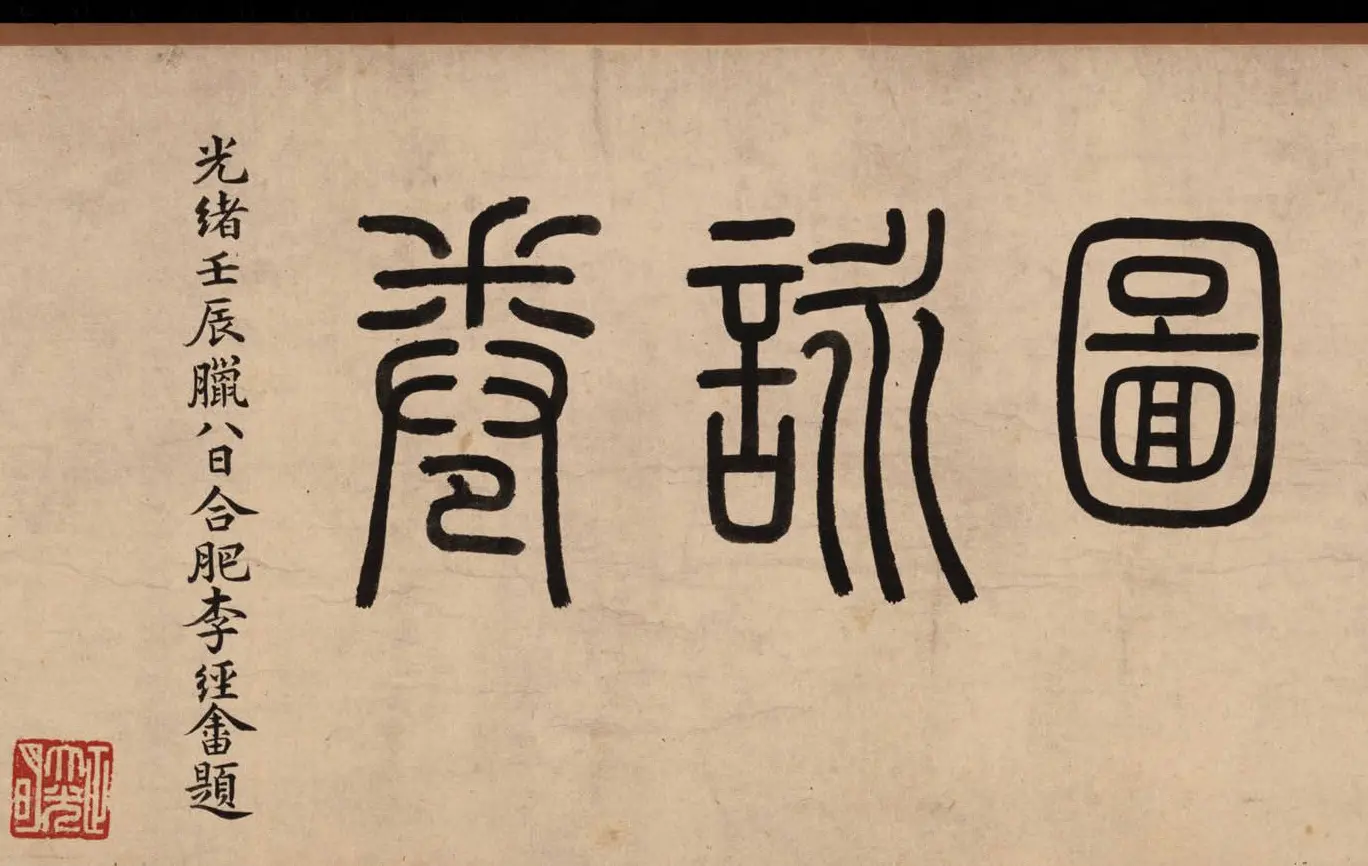 圖詠卷
光緒壬辰臘八日合肥李經畬題